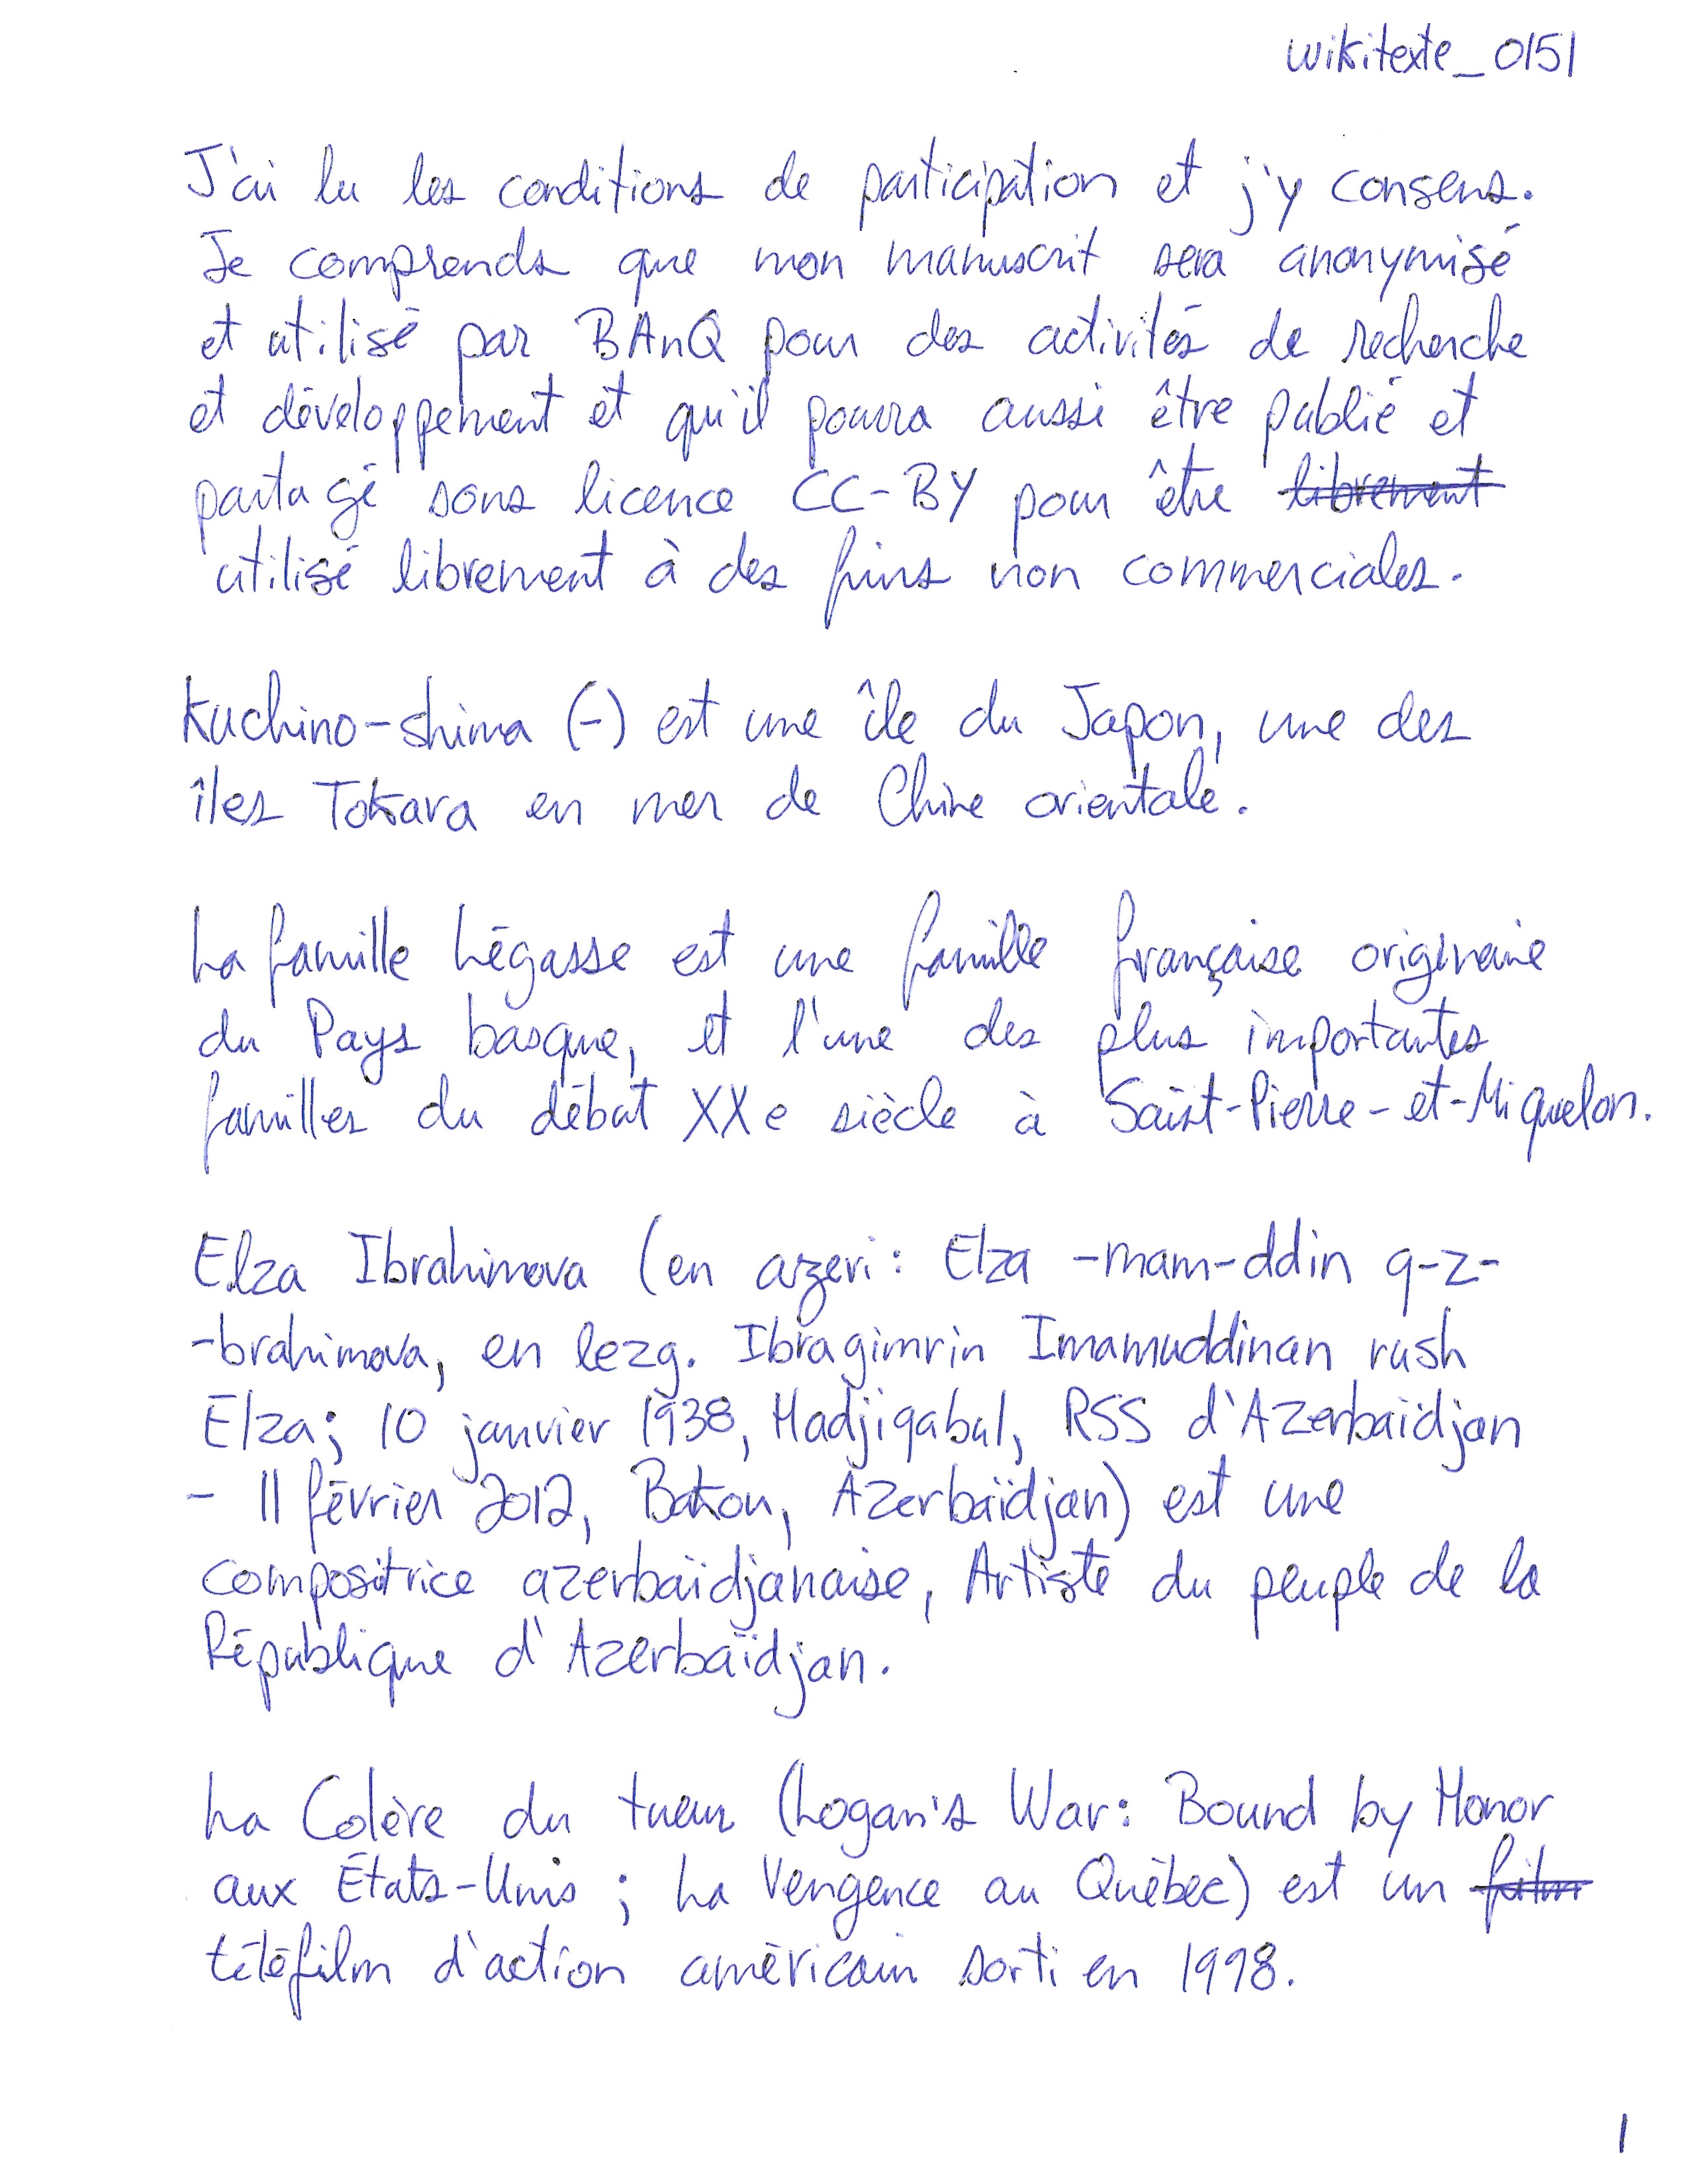 wikitexte_0151
J'ai lu les conditions de participation et j'y consens.
Je comprends que mon manuscrit sera anonymisé
et utilisé par BAnQ pour des activités de recherche
et développement et qu'il pourra aussi être publié et
partagé sous licence CC-BY pour être librement
utilisé librement à des fins non commerciales.
Kuchino-shima (-) est une île du Japon, une des
îles Tokara en mer de Chine orientale.
La famille Légasse est une famille française originaire
du Pays basque, et l'une des plus importantes
familles du début XXe siècle à Saint-Pierre-et-Miquelon.
Elza Ibrahimova (en azeri: Elza -mam-ddin q-z-
-brahimova, en lezg. Ibragimrin Imamuddinan rush
Elza; 10 janvier 1938, Hadjiqabul, RSS d'Azerbaïdjan
- 11 février 2012, Bakou, Azerbaïdjan) est une
compositrice azerbaïdjanaise, Artiste du peuple de la
République d'Azerbaïdjan.
La Colère du tueur (Logan's War: Bound by Honor
aux États-Unis ; La Vengence au Québec) est un film
téléfilm d'action américain sorti en 1998.
1